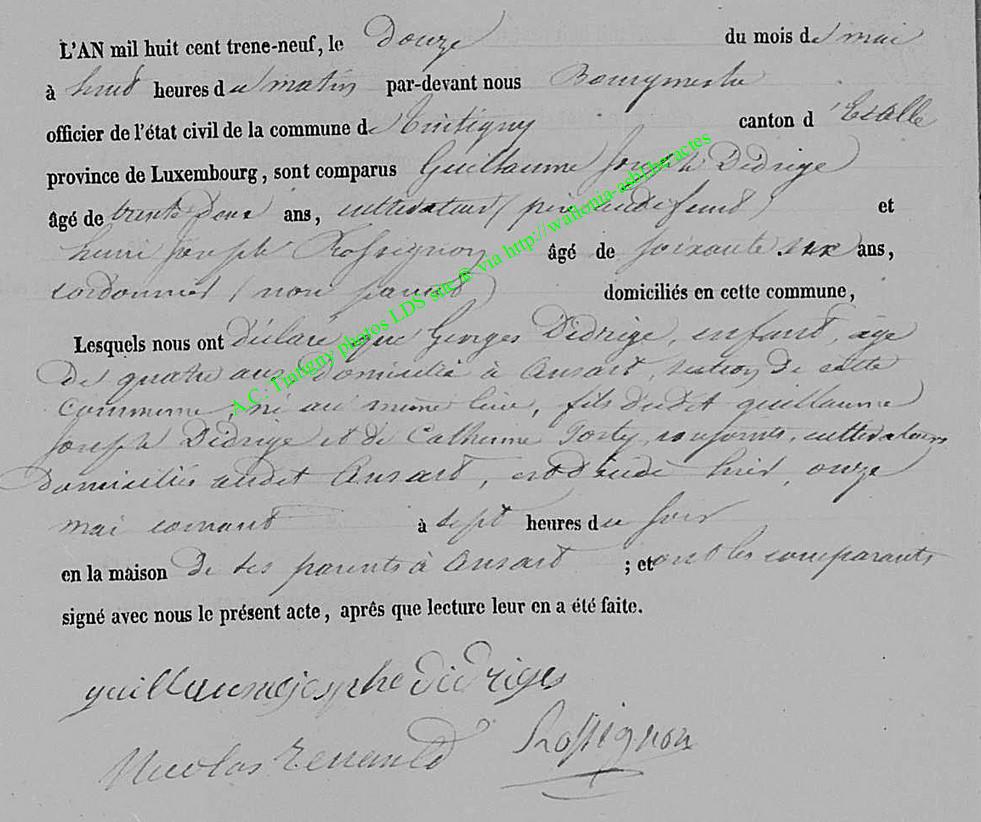 L'AN mil huit cent trene-neuf, le Douze du mois de mai
à huit heures du matin par-devant nous Bourgmestre
officier de l'état civil de la commune de Tintigny canton d'Etalle
province de Luxembourg, sont comparus Guillaume Joseph Didrige
âgé de trente deux ans, cultivateur (père du défunt et
henri Joseph Rossignon âgé de soixante six ans,
cordonnier (non parent) domiciliés en cette commune,
Lesquels nous ont déclaré que Georges Didrige, enfant, âgé
de quatre ans, domicilié à Ansart, section de cette
commune, né au même lieu, fils dudit guillaume
Joseph Didrige et de Catherine Torty, conjoints, cultivateurs
domiciliés audit Ansart, est décédé hier, onze
mai courant à sept heures du soir
en la maison de ses parents à Ansart ; et ont les comparants
signé avec nous le présent acte, après que lecture leur en a été faite.
guillaume josphe didriges
Nicolas Renauld Rossignon
A.C. Tintigny photos LDS site © via http://wallonia-asbl.be/actes